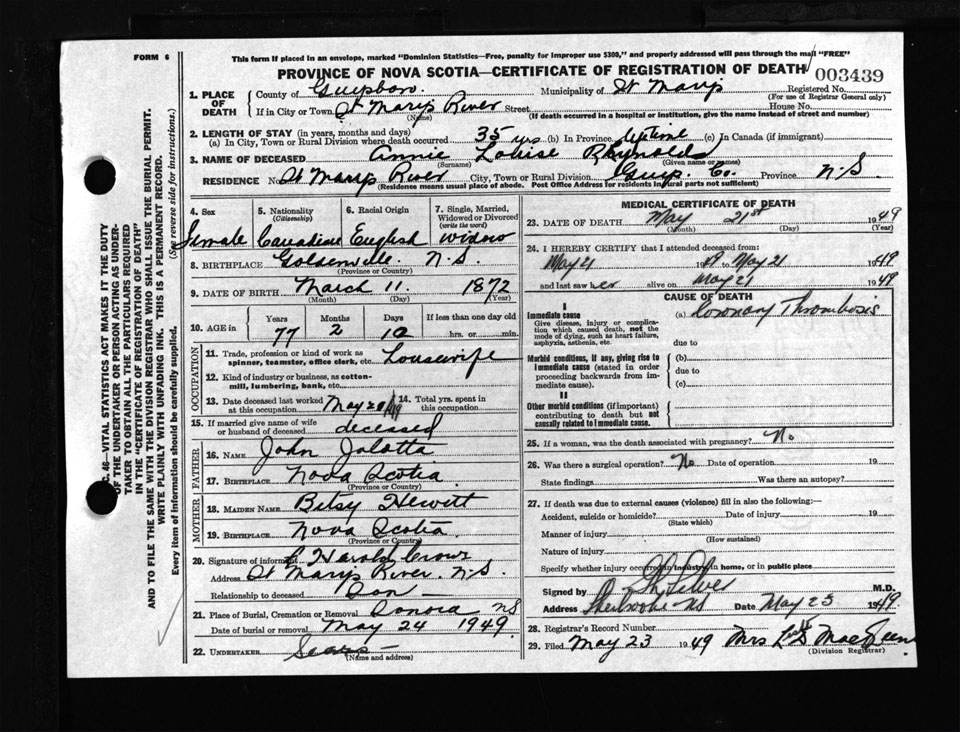 FORM 6
This form if placed in an envelope, marked "Dominion Statistics—Free, penalty for improper use $300," and properly addressed will pass through the mail "FREE"
PROVINCE OF NOVA SCOTIA—CERTIFICATE OF REGISTRATION OF DEATH
003439
1. PLACE OF DEATH
County of Guysboro. Municipality of St Marys Registered No.
(For use of Registrar General only)
If in City or Town St Marys River Street House No.
(Name) (If death occurred in a hospital or institution, give the name instead of street and number)
2. LENGTH OF STAY (in years, months and days)
(a) In City, Town or Rural Division where death occurred 35 yrs (b) In Province lifetime (c) In Canada (if immigrant)
3. NAME OF DECEASED Annie Louise Rhynolds
(Surname) (Given names)
RESIDENCE No. St Marys River City, Town or Rural Division Guys. Co. Province N.S.
(Residence means usual place of abode. Post Office Address for residents in rural parts not sufficient)
4. Sex
Female
5. Nationality (Citizenship)
Canadian
6. Racial Origin
English
7. Single, Married, Widowed or Divorced (write the word)
widow
8. BIRTHPLACE Goldenville N.S.
(Province or Country)
9. DATE OF BIRTH March 11. 1872
(Month) (Day) (Year)
10. AGE in
Years Months Days If less than one day old
77 2 10 hrs. or min.
OCCUPATION
11. Trade, profession or kind of work as spinner, teamster, office clerk, etc. Housewife
12. Kind of industry or business, as cotton-mill, lumbering, bank, etc.
13. Date deceased last worked at this occupation May 20/49
14. Total yrs. spent in this occupation
15. If married give name of wife or husband of deceased deceased
FATHER
16. NAME John Jolotta
17. BIRTHPLACE Nova Scotia
(Province or Country)
MOTHER
18. MAIDEN NAME Betsy Hewitt
19. BIRTHPLACE Nova Scotia
(Province or Country)
20. Signature of informant Harold
Address St Marys River. N.S.
Relationship to deceased Son
21. Place of Burial, Cremation or Removal Sonora NS
Date of burial or removal May 24 1949
22. UNDERTAKER
(Name and address)
MEDICAL CERTIFICATE OF DEATH
23. DATE OF DEATH May 21st 1949
(Month) (Day) (Year)
24. I HEREBY CERTIFY that I attended deceased from:
May 21 1949 to May 21 1949
and last saw her alive on May 21 1949
CAUSE OF DEATH
I
Immediate cause
Give disease, injury or complication which caused death, not the mode of dying, such as heart failure, asphyxia, asthenia, etc.
(a) Coronary Thrombosis
due to
Morbid conditions, if any, giving rise to immediate cause (stated in order proceeding backwards from immediate cause).
(b)
due to
(c)
II
Other morbid conditions (if important) contributing to death but not causally related to immediate cause.
25. If a woman, was the death associated with pregnancy? No
26. Was there a surgical operation? No Date of operation 19
State findings Was there an autopsy?
27. If death was due to external causes (violence) fill in also the following:—
Accident, suicide or homicide? Date of injury 19
(State which)
Manner of injury
(How sustained)
Nature of injury
Specify whether injury occurred in industry, in home, or in public place
Signed by M.D.
Address Sherbrooke NS Date May 23 1949
28. Registrar's Record Number
29. Filed May 23 1949 Mrs
(Division Registrar)
C. 46—VITAL STATISTICS ACT MAKES IT THE DUTY
OF THE UNDERTAKER OR PERSON ACTING AS UNDER-
TAKER TO OBTAIN ALL THE PARTICULARS REQUIRED
IN THE "CERTIFICATE OF REGISTRATION OF DEATH"
AND TO FILE THE SAME WITH THE DIVISION REGISTRAR WHO SHALL ISSUE THE BURIAL PERMIT.
WRITE PLAINLY WITH UNFADING INK. THIS IS A PERMANENT RECORD.
Every item of information should be carefully supplied. (See reverse side for instructions.)